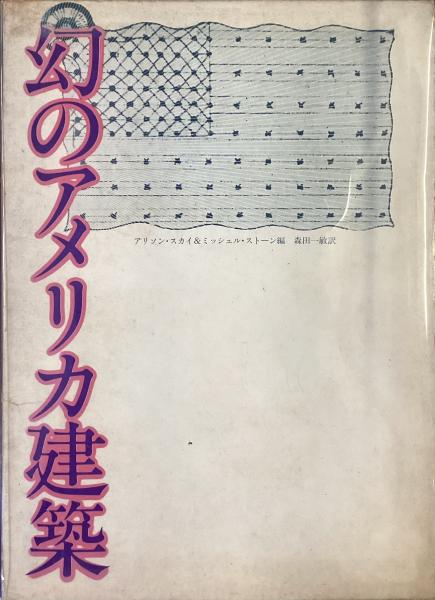 幻のアメリカ建築
アリソン・スカイ&ミッシェル・ストーン編 森田一敏訳